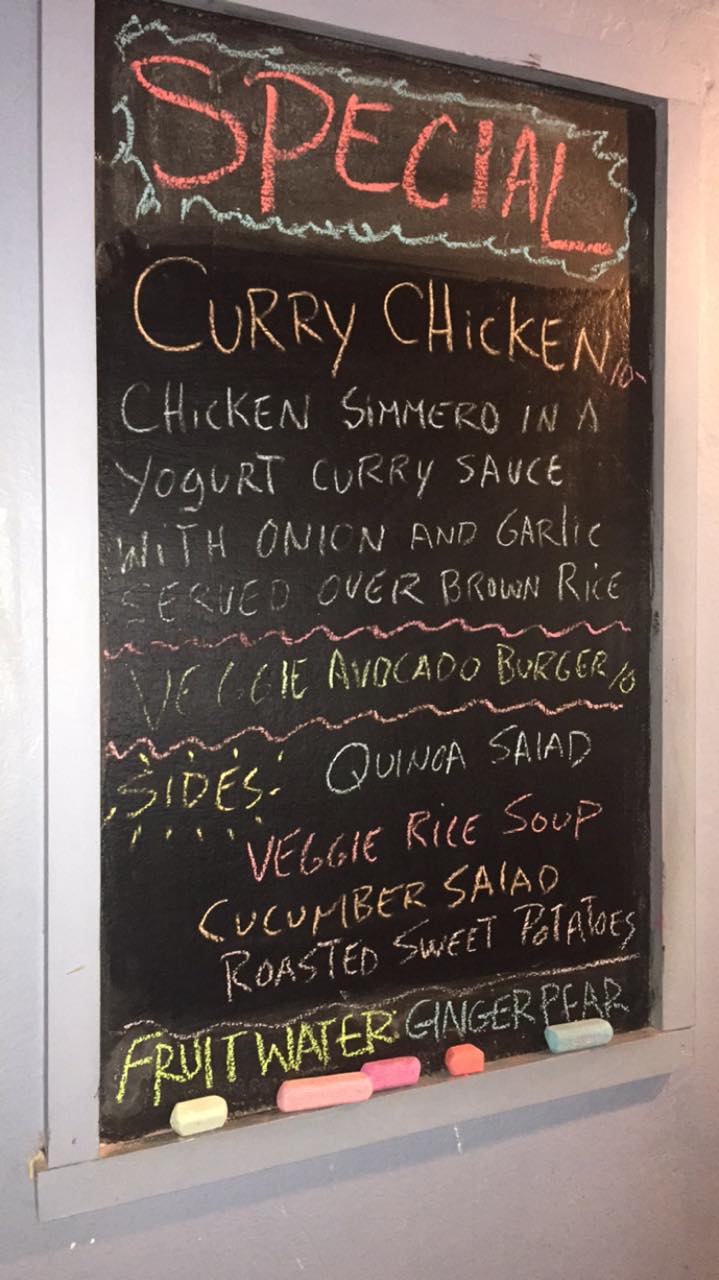 SPECIAL
CURRY CHICKEN 10-
CHICKEN SIMMERD IN A
YOGURT CURRY SAUCE
WITH ONION AND GARLIC
SERVED OVER BROWN RICE
VEGGIE AVOCADO BURGER 10
SIDES: QUINOA SALAD
VEGGIE RICE SOUP
CUCUMBER SALAD
ROASTED SWEET POTATOES
FRUIT WATER GINGER PEAR